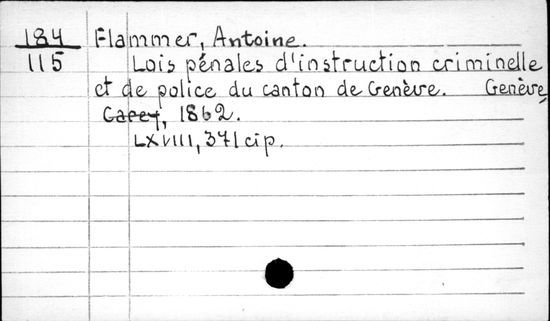 184 Flammer, Antoine.
115 Lois pénales d'instruction criminelle
et de police du canton de Genève. Genève,
Carey, 1862.
LXVIII, 371 cip.